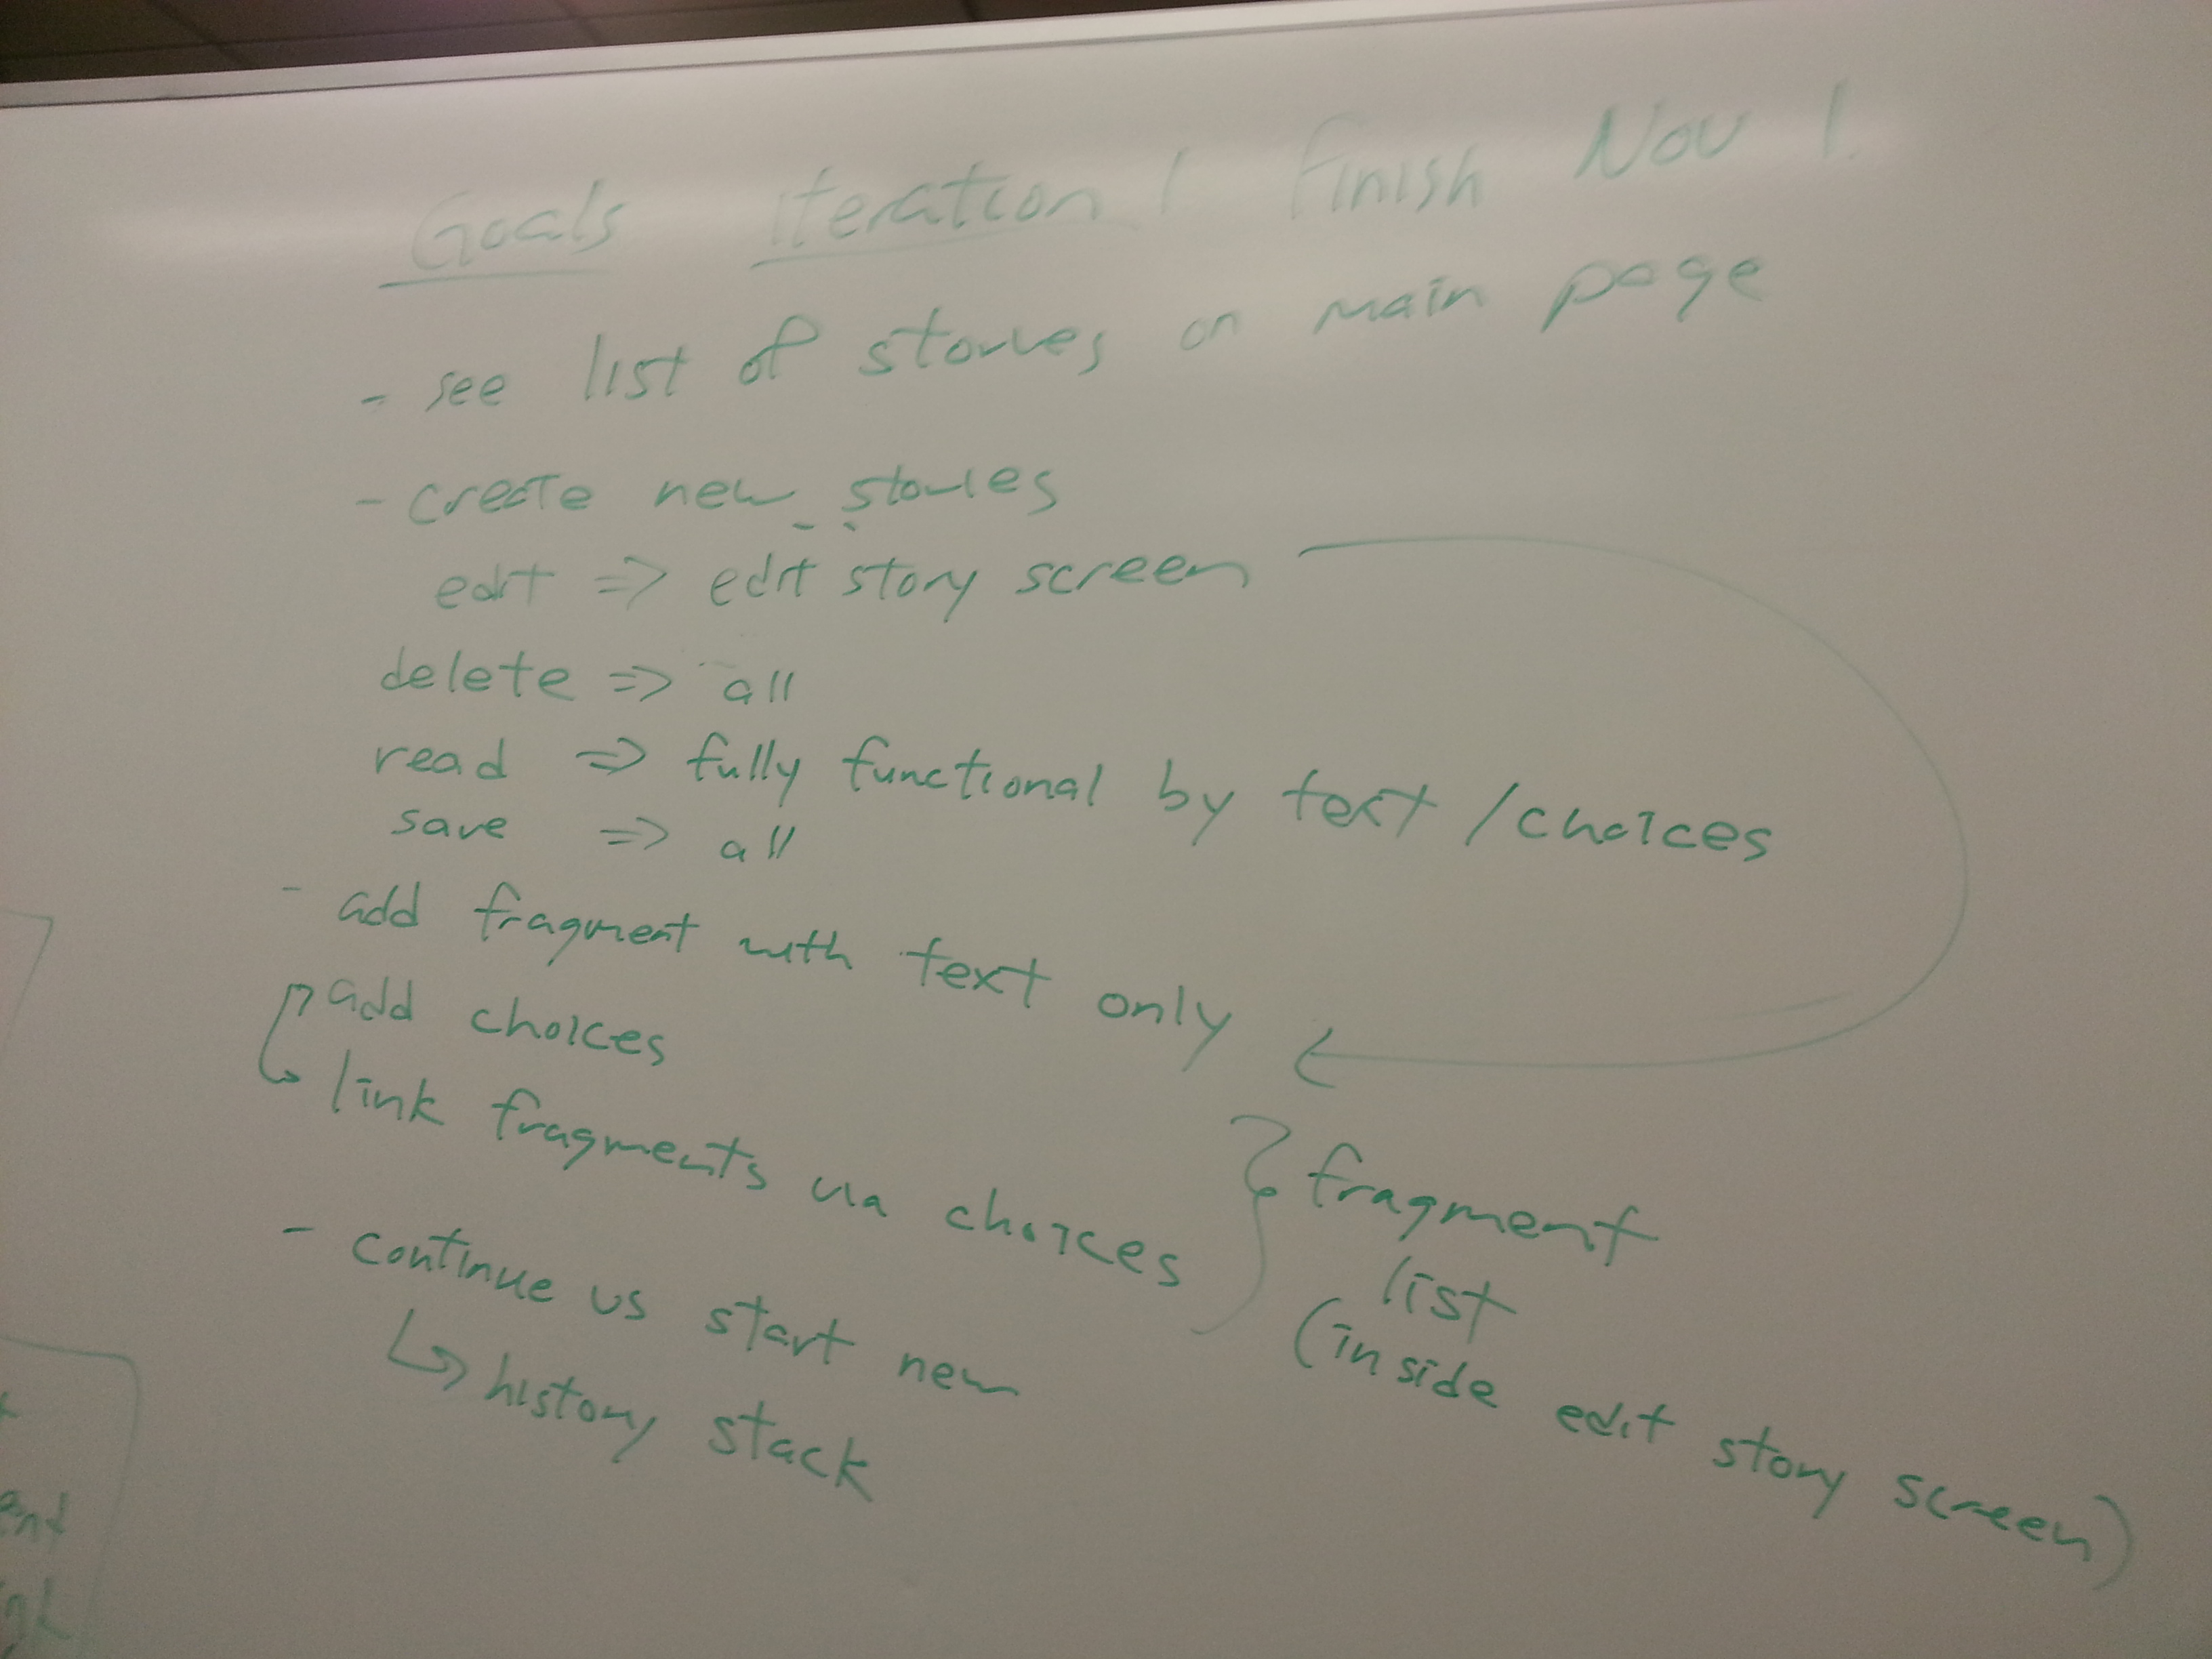 Goals Iteration 1 Finish Nov 1
- see list of stories on main page
- create new stories
edit => edit story screen
delete => all
read => fully functional by text / choices
save => all
- add fragment with text only
add choices
link fragments via choices
} fragment
list
(inside edit story screen)
- continue vs start new
↳ history stack